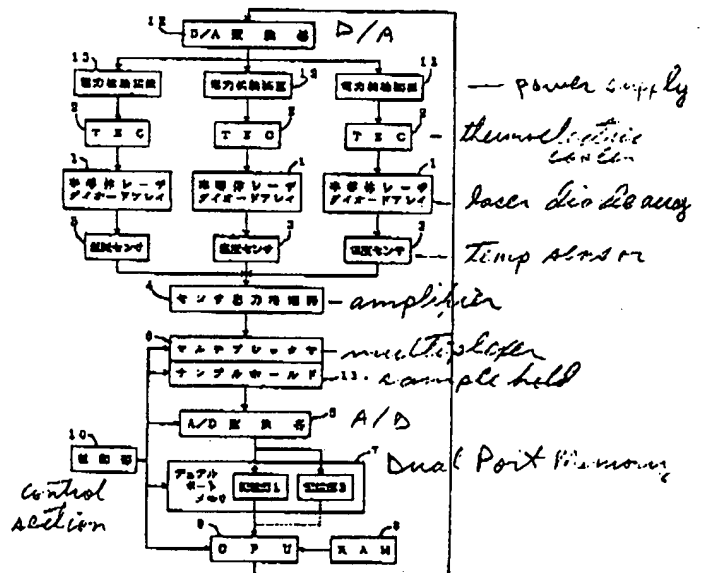 12
D/A 変換器
D/A
13
12
11
電力供給装置 電力供給装置 電力供給装置
— power supply
2 2 2
TEC TEC TEC
— thermoelectric
1 1 1
半導体レーザ
ダイオードアレイ
半導体レーザ
ダイオードアレイ
半導体レーザ
ダイオードアレイ
— laser diode array
3 3 3
温度センサ 温度センサ 温度センサ
— Temp sensor
4
センサ出力増幅器
— amplifier
6
マルチプレックサ
— multiplexer
サンプルホールド
13
sample hold
5
A/D 変換器
A/D
10
制御部
control
section
7
デュアル
ポート
メモリ
Dual Port Memory
9
CPU
8
RAM